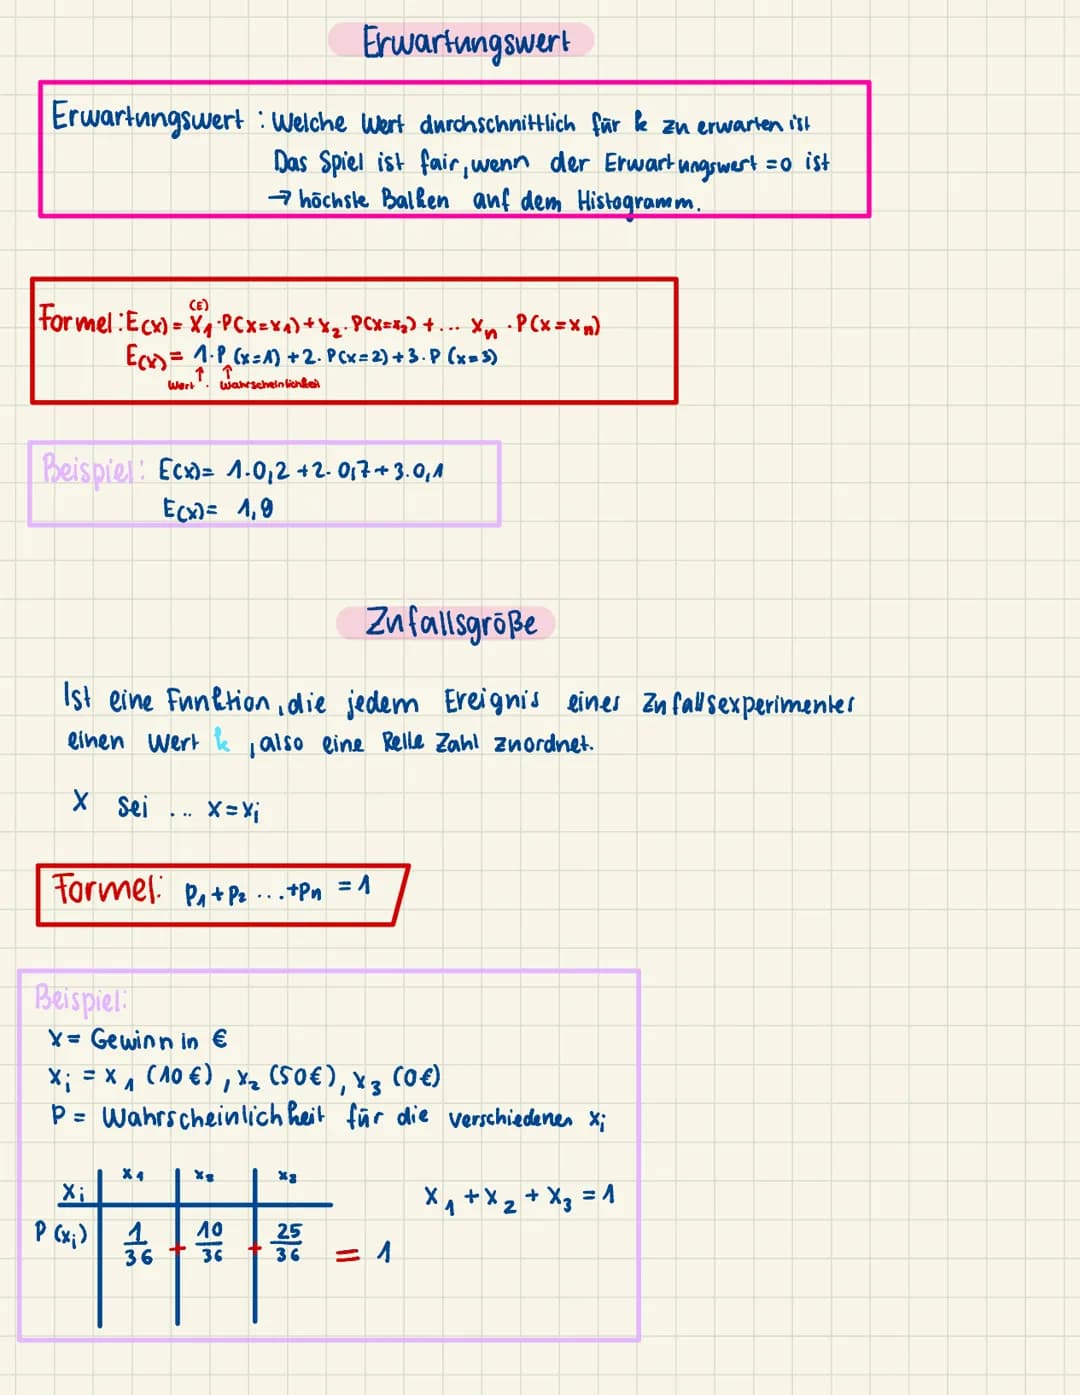 Erwartungswert
Erwartungswert : Welche Wert durchschnittlich für k zu erwarten ist
Das Spiel ist fair, wenn der Erwartungswert =0 ist
→ höchste Balken auf dem Histogramm.
(E)
Formel: E(x) = X₁ · P(X=x₁) + x₂ · P(X=x₂) + ... Xₙ · P(X=Xₙ)
E(x) = 1 · P(x=1) + 2 · P(x=2) + 3 · P(x=3)
↑ ↑
Wert · Wahrscheinlichkeit
Beispiel: E(x)= 1·0,2 + 2·0,7 + 3·0,1
E(x)= 1,9
Zufallsgröße
Ist eine Funktion, die jedem Ereignis eines Zufallsexperimentes
einen Wert k, also eine Relle Zahl zuordnet.
X sei ... X=xᵢ
Formel: P₁+P₂ ...+Pₙ = 1
Beispiel:
X= Gewinn in €
Xᵢ = X₁ (10 €), X₂ (50€), X₃ (0€)
P = Wahrscheinlichkeit für die verschiedenen xᵢ
Xᵢ X₁ X₂ X₃
P(xᵢ) 1/36 + 10/36 + 25/36 = 1
X₁ + X₂ + X₃ = 1